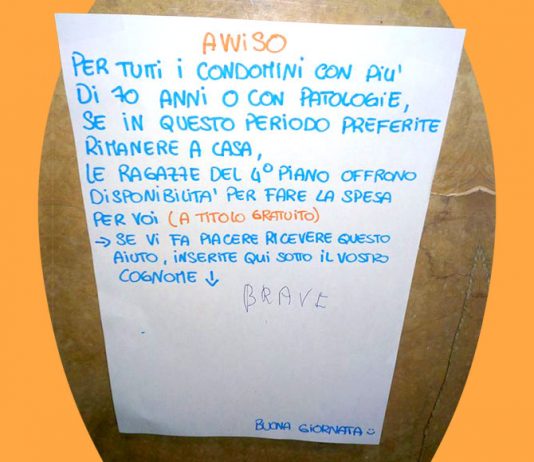 AVVISO
PER TUTTI I CONDOMINI CON PIU'
DI 70 ANNI O CON PATOLOGIE,
SE IN QUESTO PERIODO PREFERITE
RIMANERE A CASA,
LE RAGAZZE DEL 4º PIANO OFFRONO
DISPONIBILITA' PER FARE LA SPESA
PER VOI (A TITOLO GRATUITO)
→ SE VI FA PIACERE RICEVERE QUESTO
AIUTO, INSERITE QUI SOTTO IL VOSTRO
COGNOME ↓
BRAVE
BUONA GIORNATA ☺